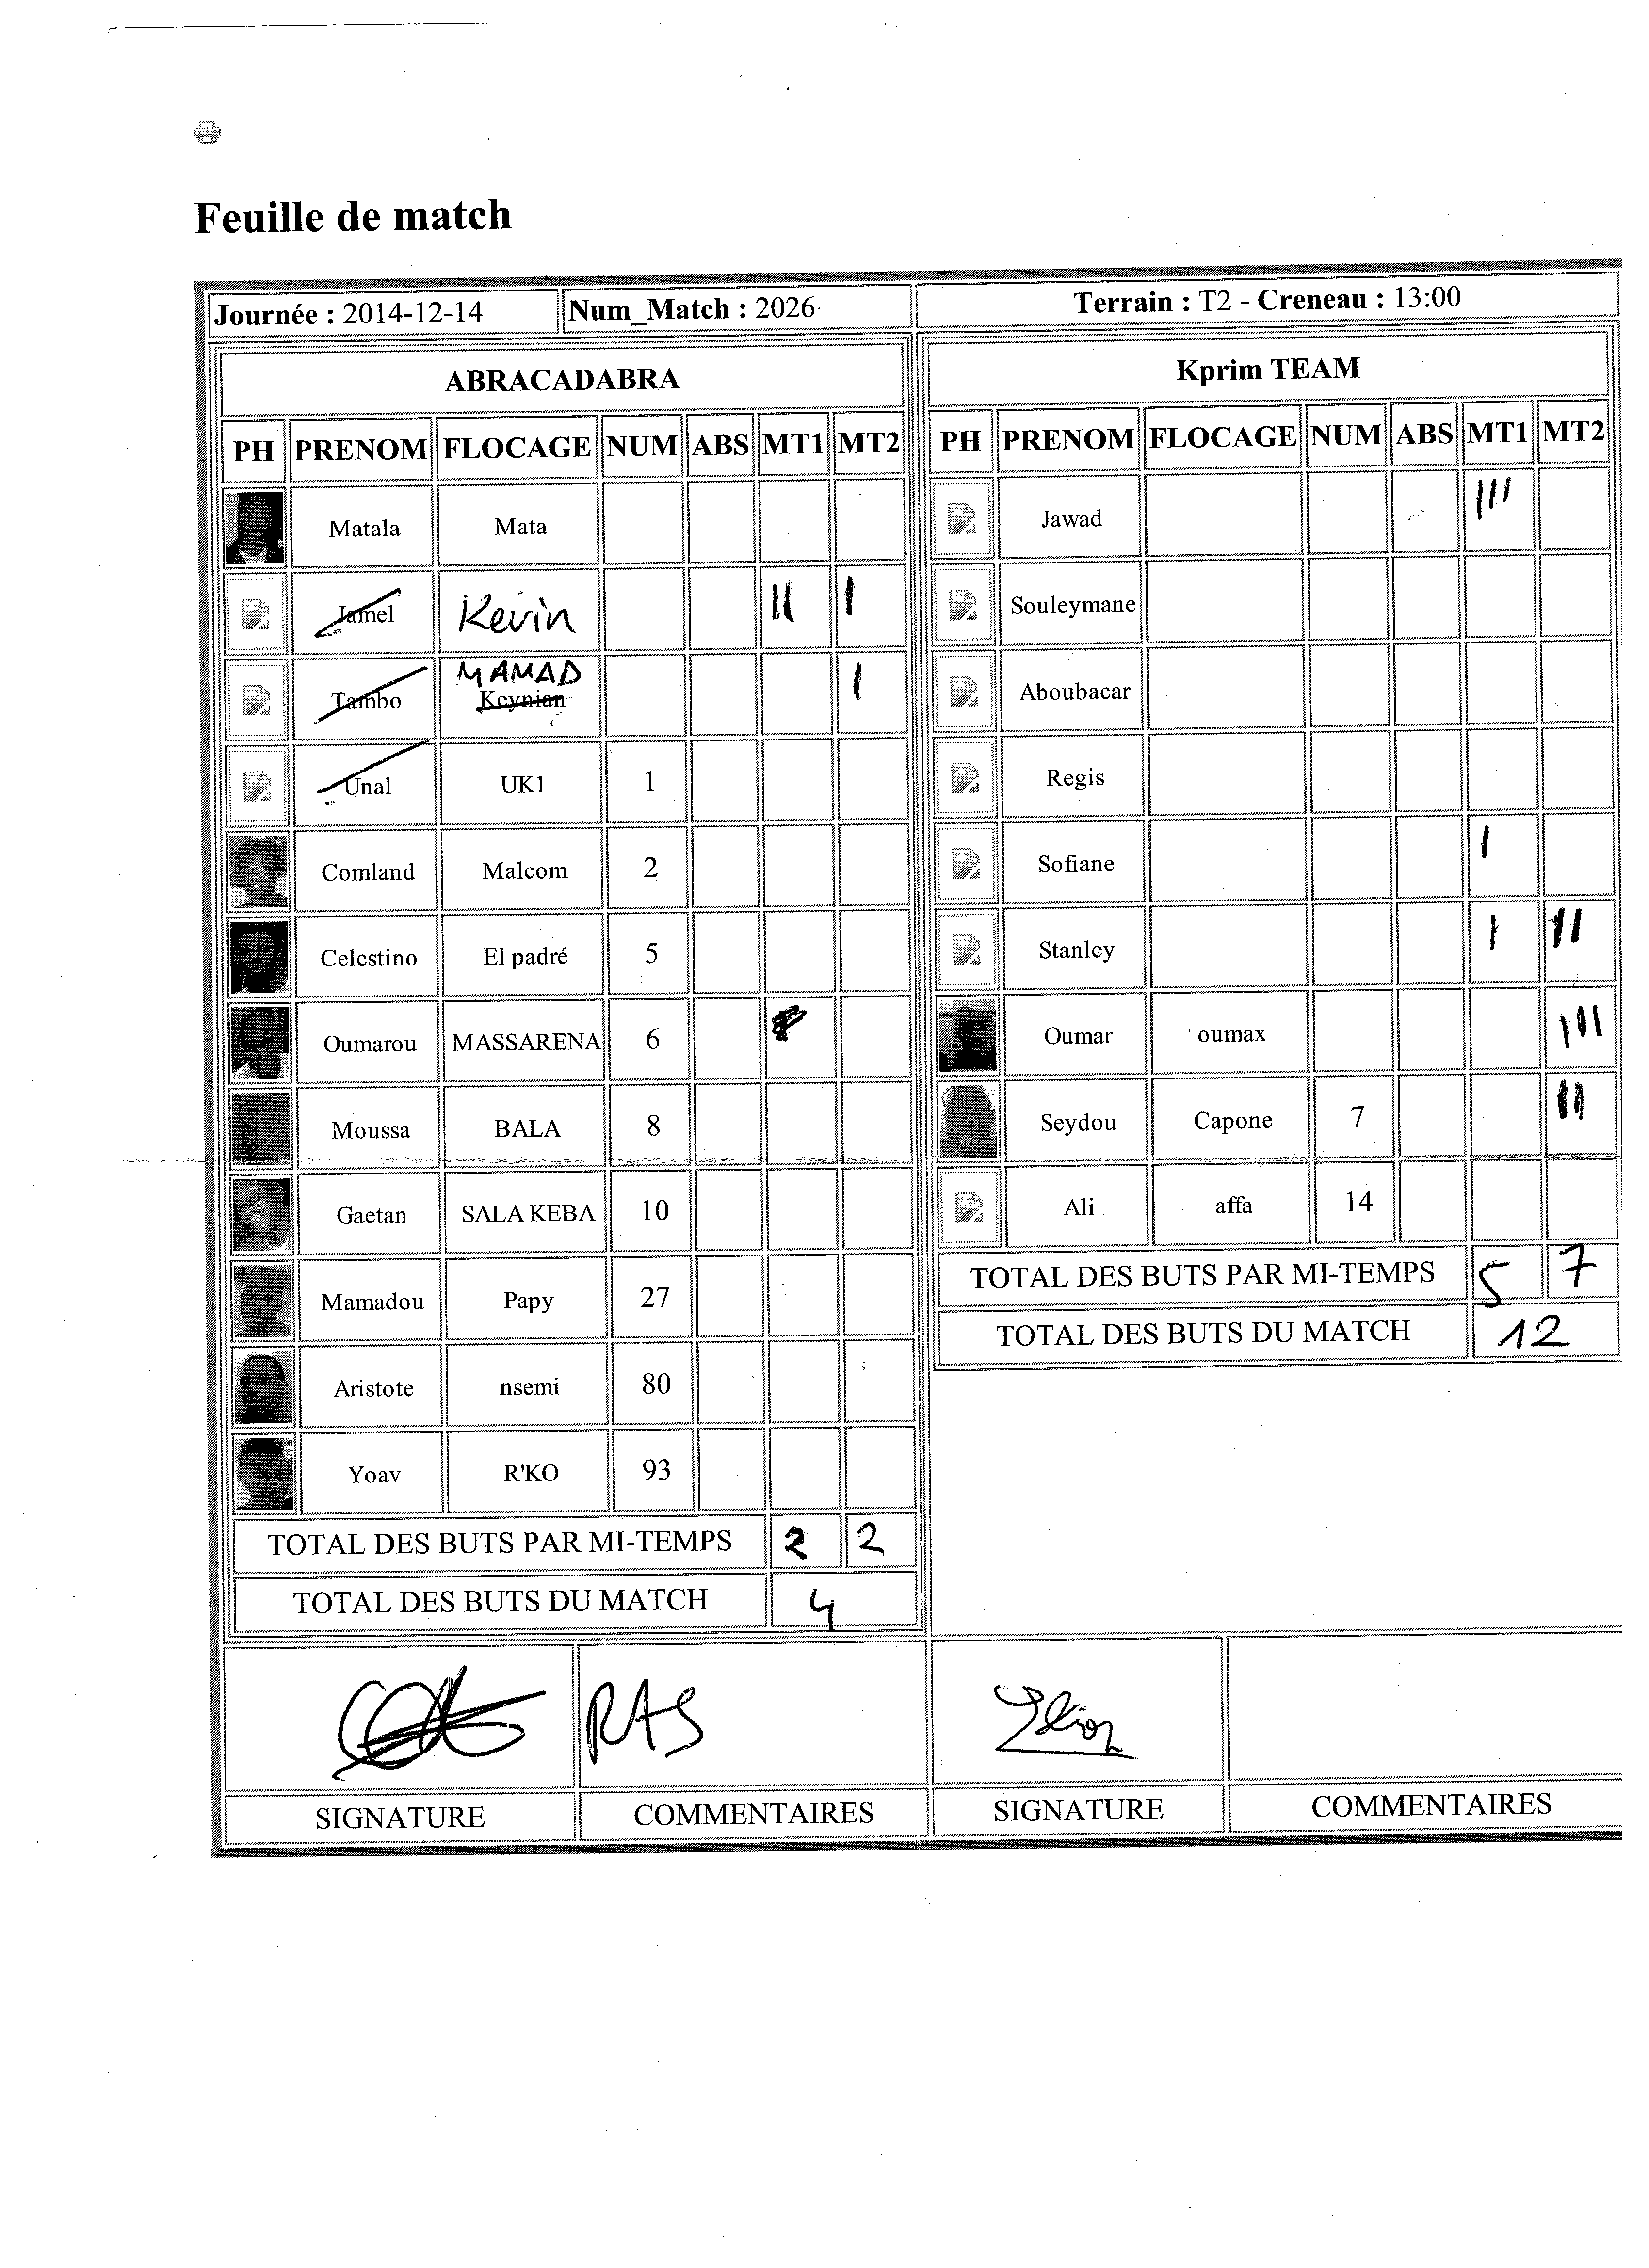 Feuille de match
Journée : 2014-12-14 Num_Match : 2026 Terrain : T2 - Creneau : 13:00
ABRACADABRA
PH PRENOM FLOCAGE NUM ABS MT1 MT2
Matala Mata
Jamel Kevin II I
MAMAD
Tambo Keynian I
Unal UK1 1
Comland Malcom 2
Celestino El padré 5
Oumarou MASSARENA 6
Moussa BALA 8
Gaetan SALA KEBA 10
Mamadou Papy 27
Aristote nsemi 80
Yoav R'KO 93
TOTAL DES BUTS PAR MI-TEMPS 2 2
TOTAL DES BUTS DU MATCH 4
Kprim TEAM
PH PRENOM FLOCAGE NUM ABS MT1 MT2
Jawad III
Souleymane
Aboubacar
Regis
Sofiane I
Stanley I II
Oumar oumax III
Seydou Capone 7 II
Ali affa 14
TOTAL DES BUTS PAR MI-TEMPS 5 7
TOTAL DES BUTS DU MATCH 12
RAS
SIGNATURE COMMENTAIRES SIGNATURE COMMENTAIRES